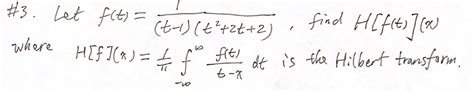 #3. Let f(t) = 1 / ((t-1)(t²+2t+2)), find H[f(t)](x)
where H[f](x) = 1/π ∫_{-∞}^{∞} f(t)/(t-x) dt is the Hilbert transform.